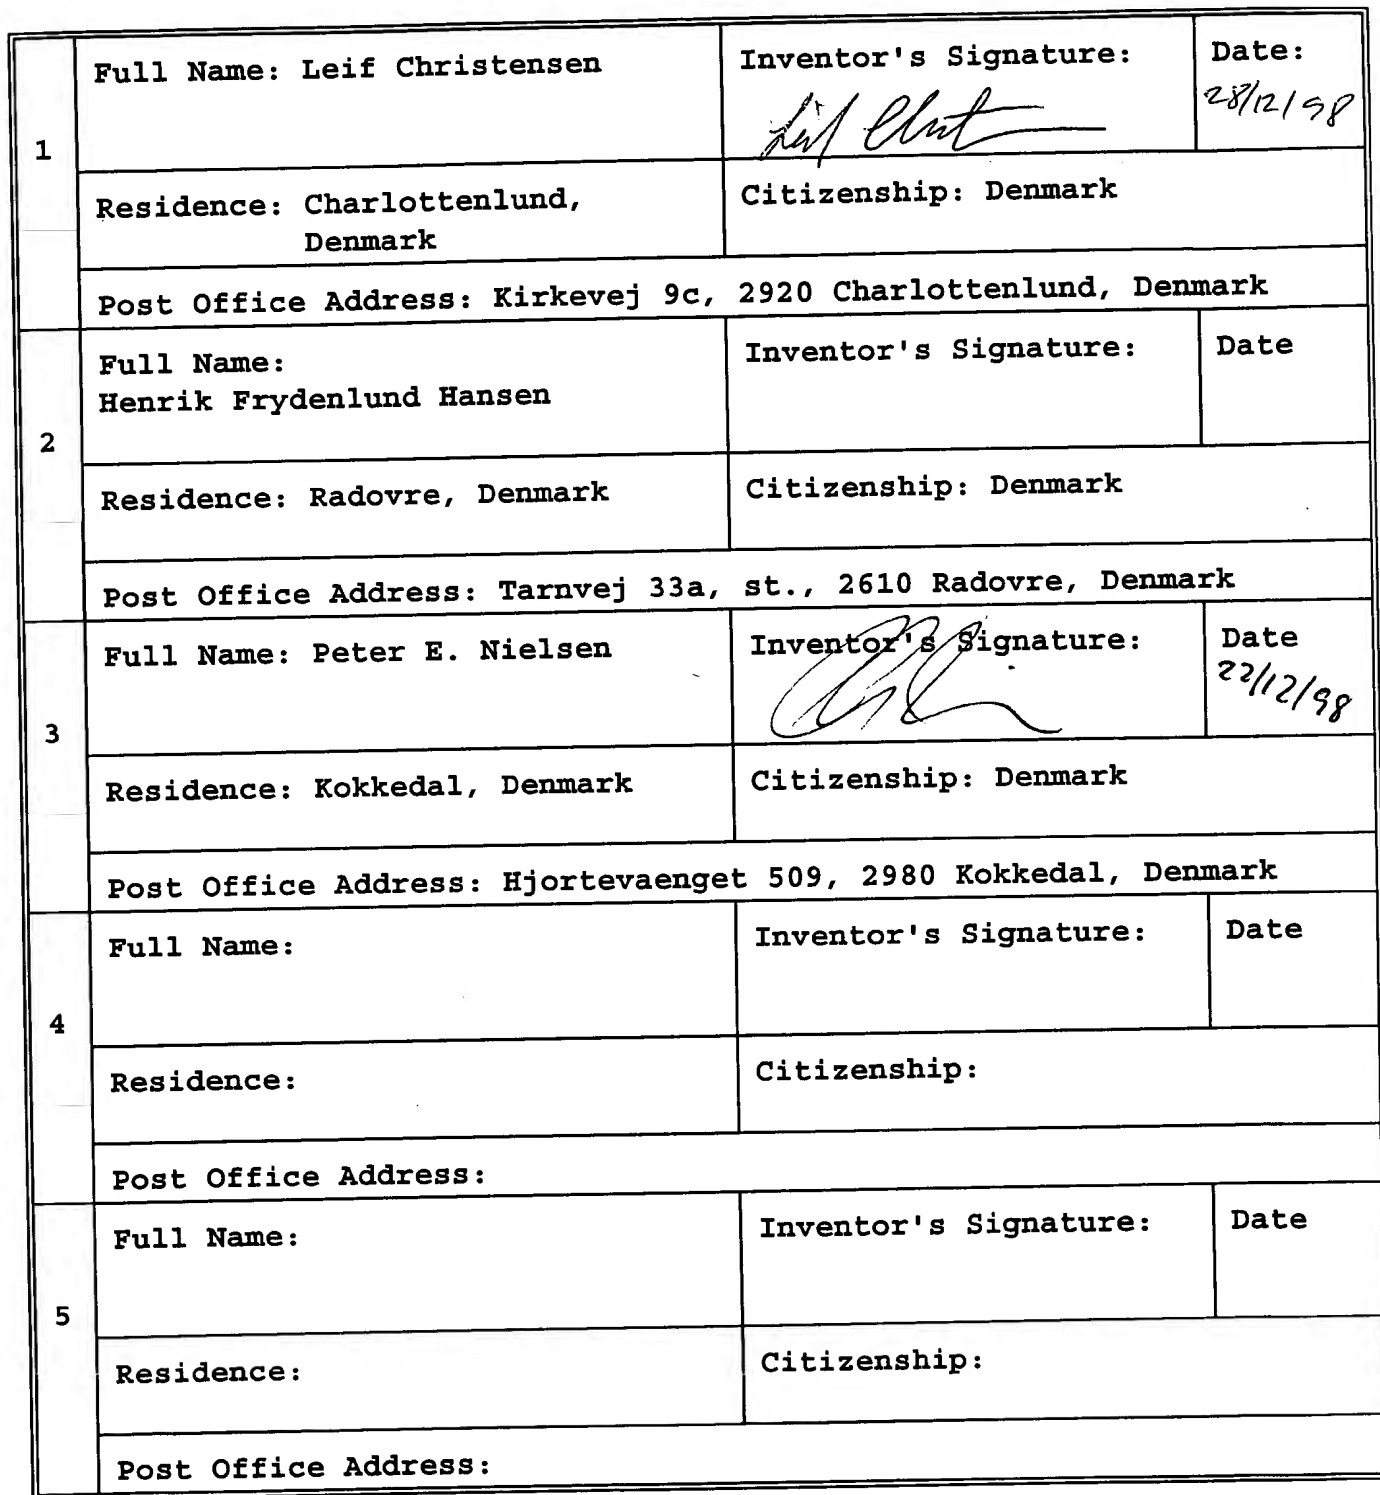 1
Full Name: Leif Christensen
Inventor's Signature:
Date:
28/12/98
Residence: Charlottenlund,
Denmark
Citizenship: Denmark
Post Office Address: Kirkevej 9c, 2920 Charlottenlund, Denmark
2
Full Name:
Henrik Frydenlund Hansen
Inventor's Signature:
Date
Residence: Radovre, Denmark
Citizenship: Denmark
Post Office Address: Tarnvej 33a, st., 2610 Radovre, Denmark
3
Full Name: Peter E. Nielsen
Inventor's Signature:
Date
22/12/98
Residence: Kokkedal, Denmark
Citizenship: Denmark
Post Office Address: Hjortevaenget 509, 2980 Kokkedal, Denmark
4
Full Name:
Inventor's Signature:
Date
Residence:
Citizenship:
Post Office Address:
5
Full Name:
Inventor's Signature:
Date
Residence:
Citizenship:
Post Office Address: